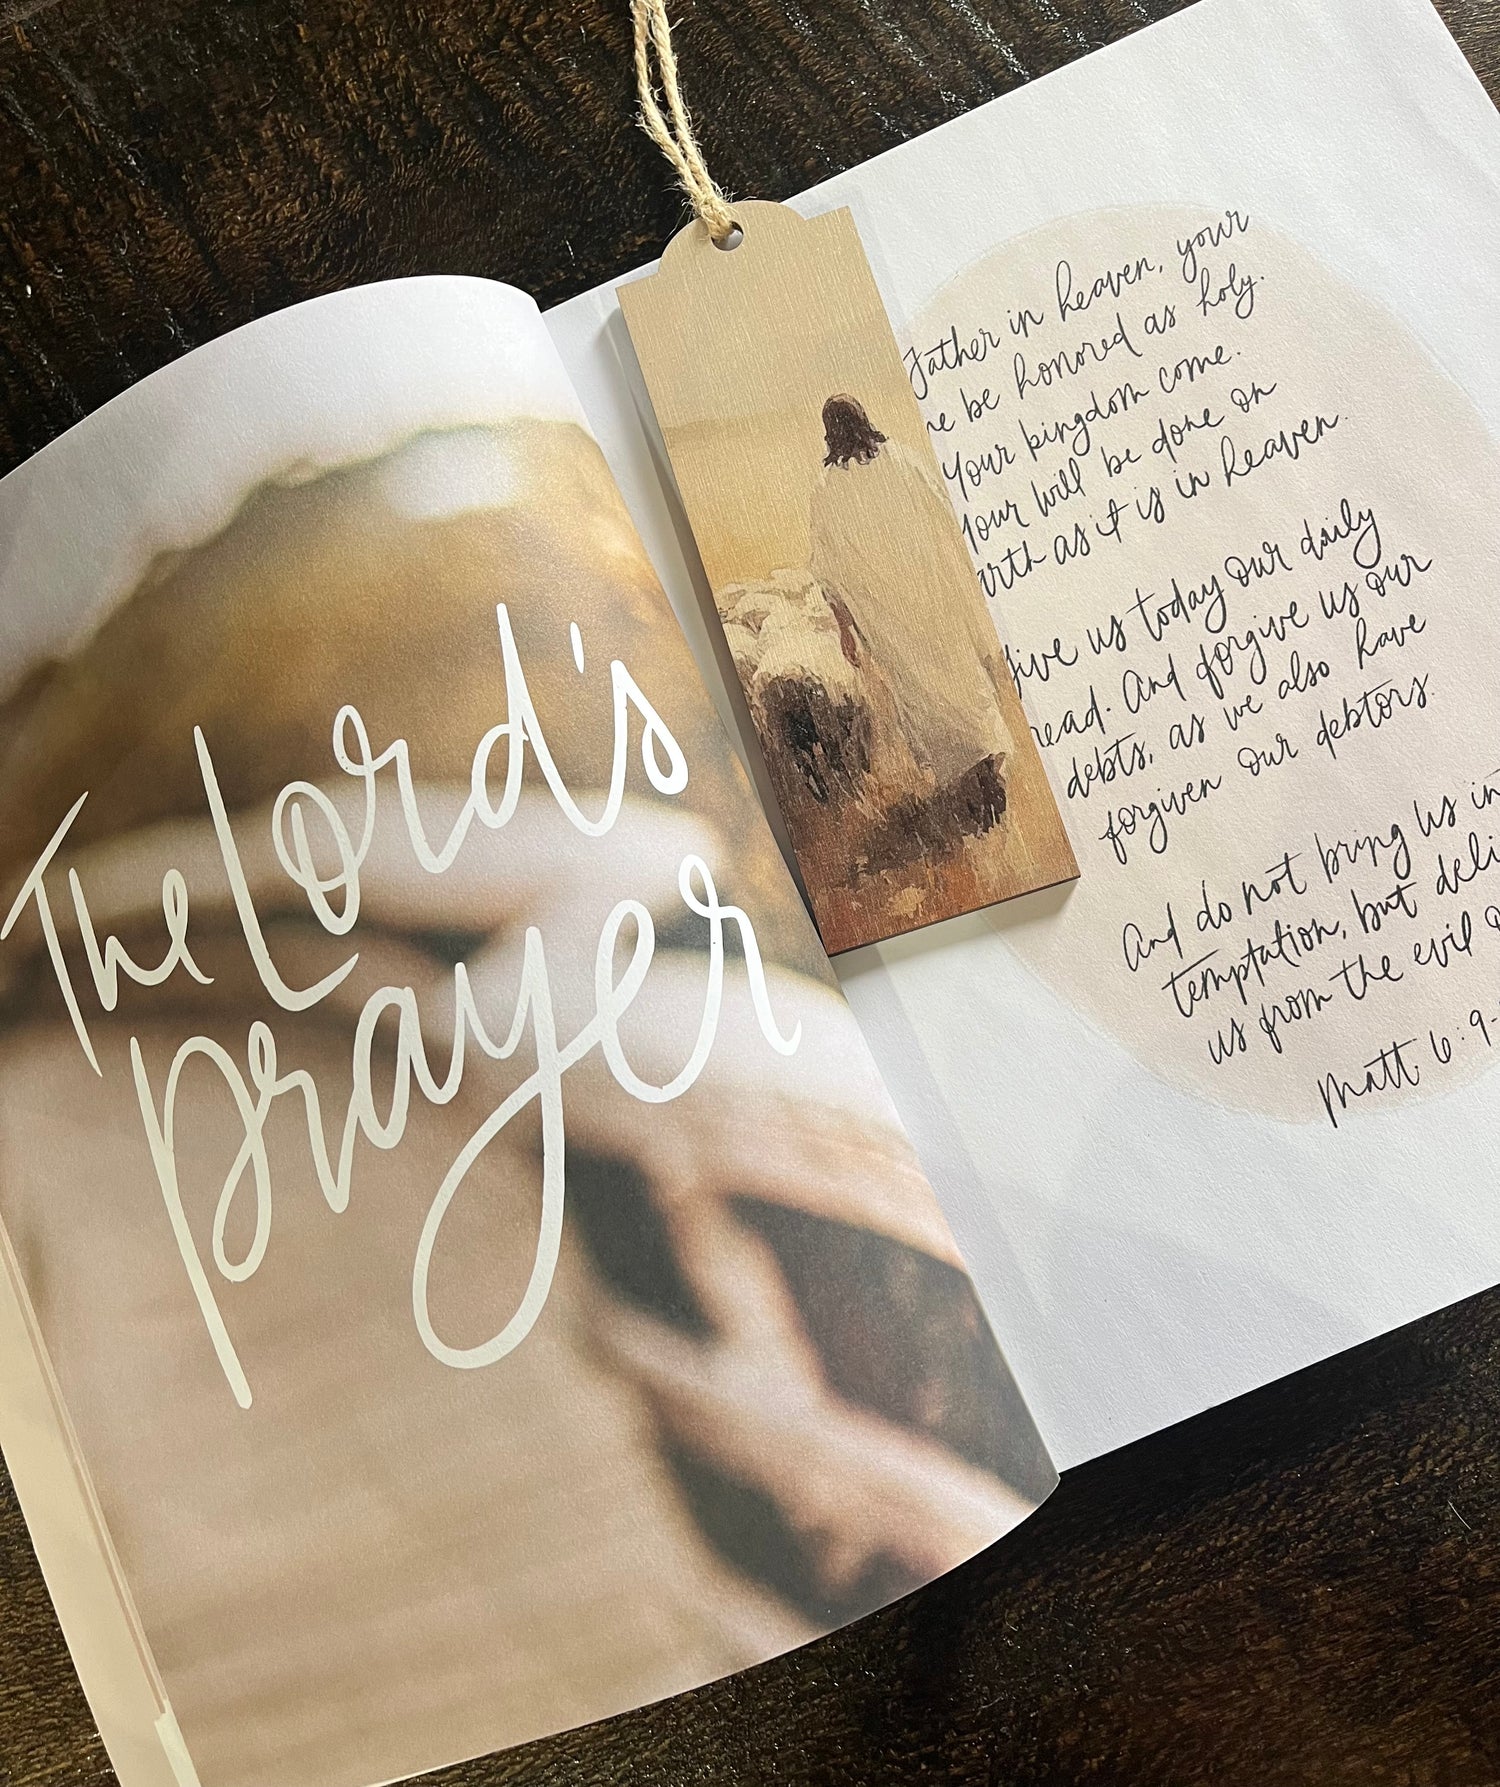 The Lord's
prayer
Father in heaven, your
be honored as holy.
Your kingdom come.
Your will be done on
as it is in heaven.
Give us today our daily
And forgive us our
debts, as we also have
forgiven our debtors.
And do not bring us
temptation, but
us from the evil
Matt. 6:9-